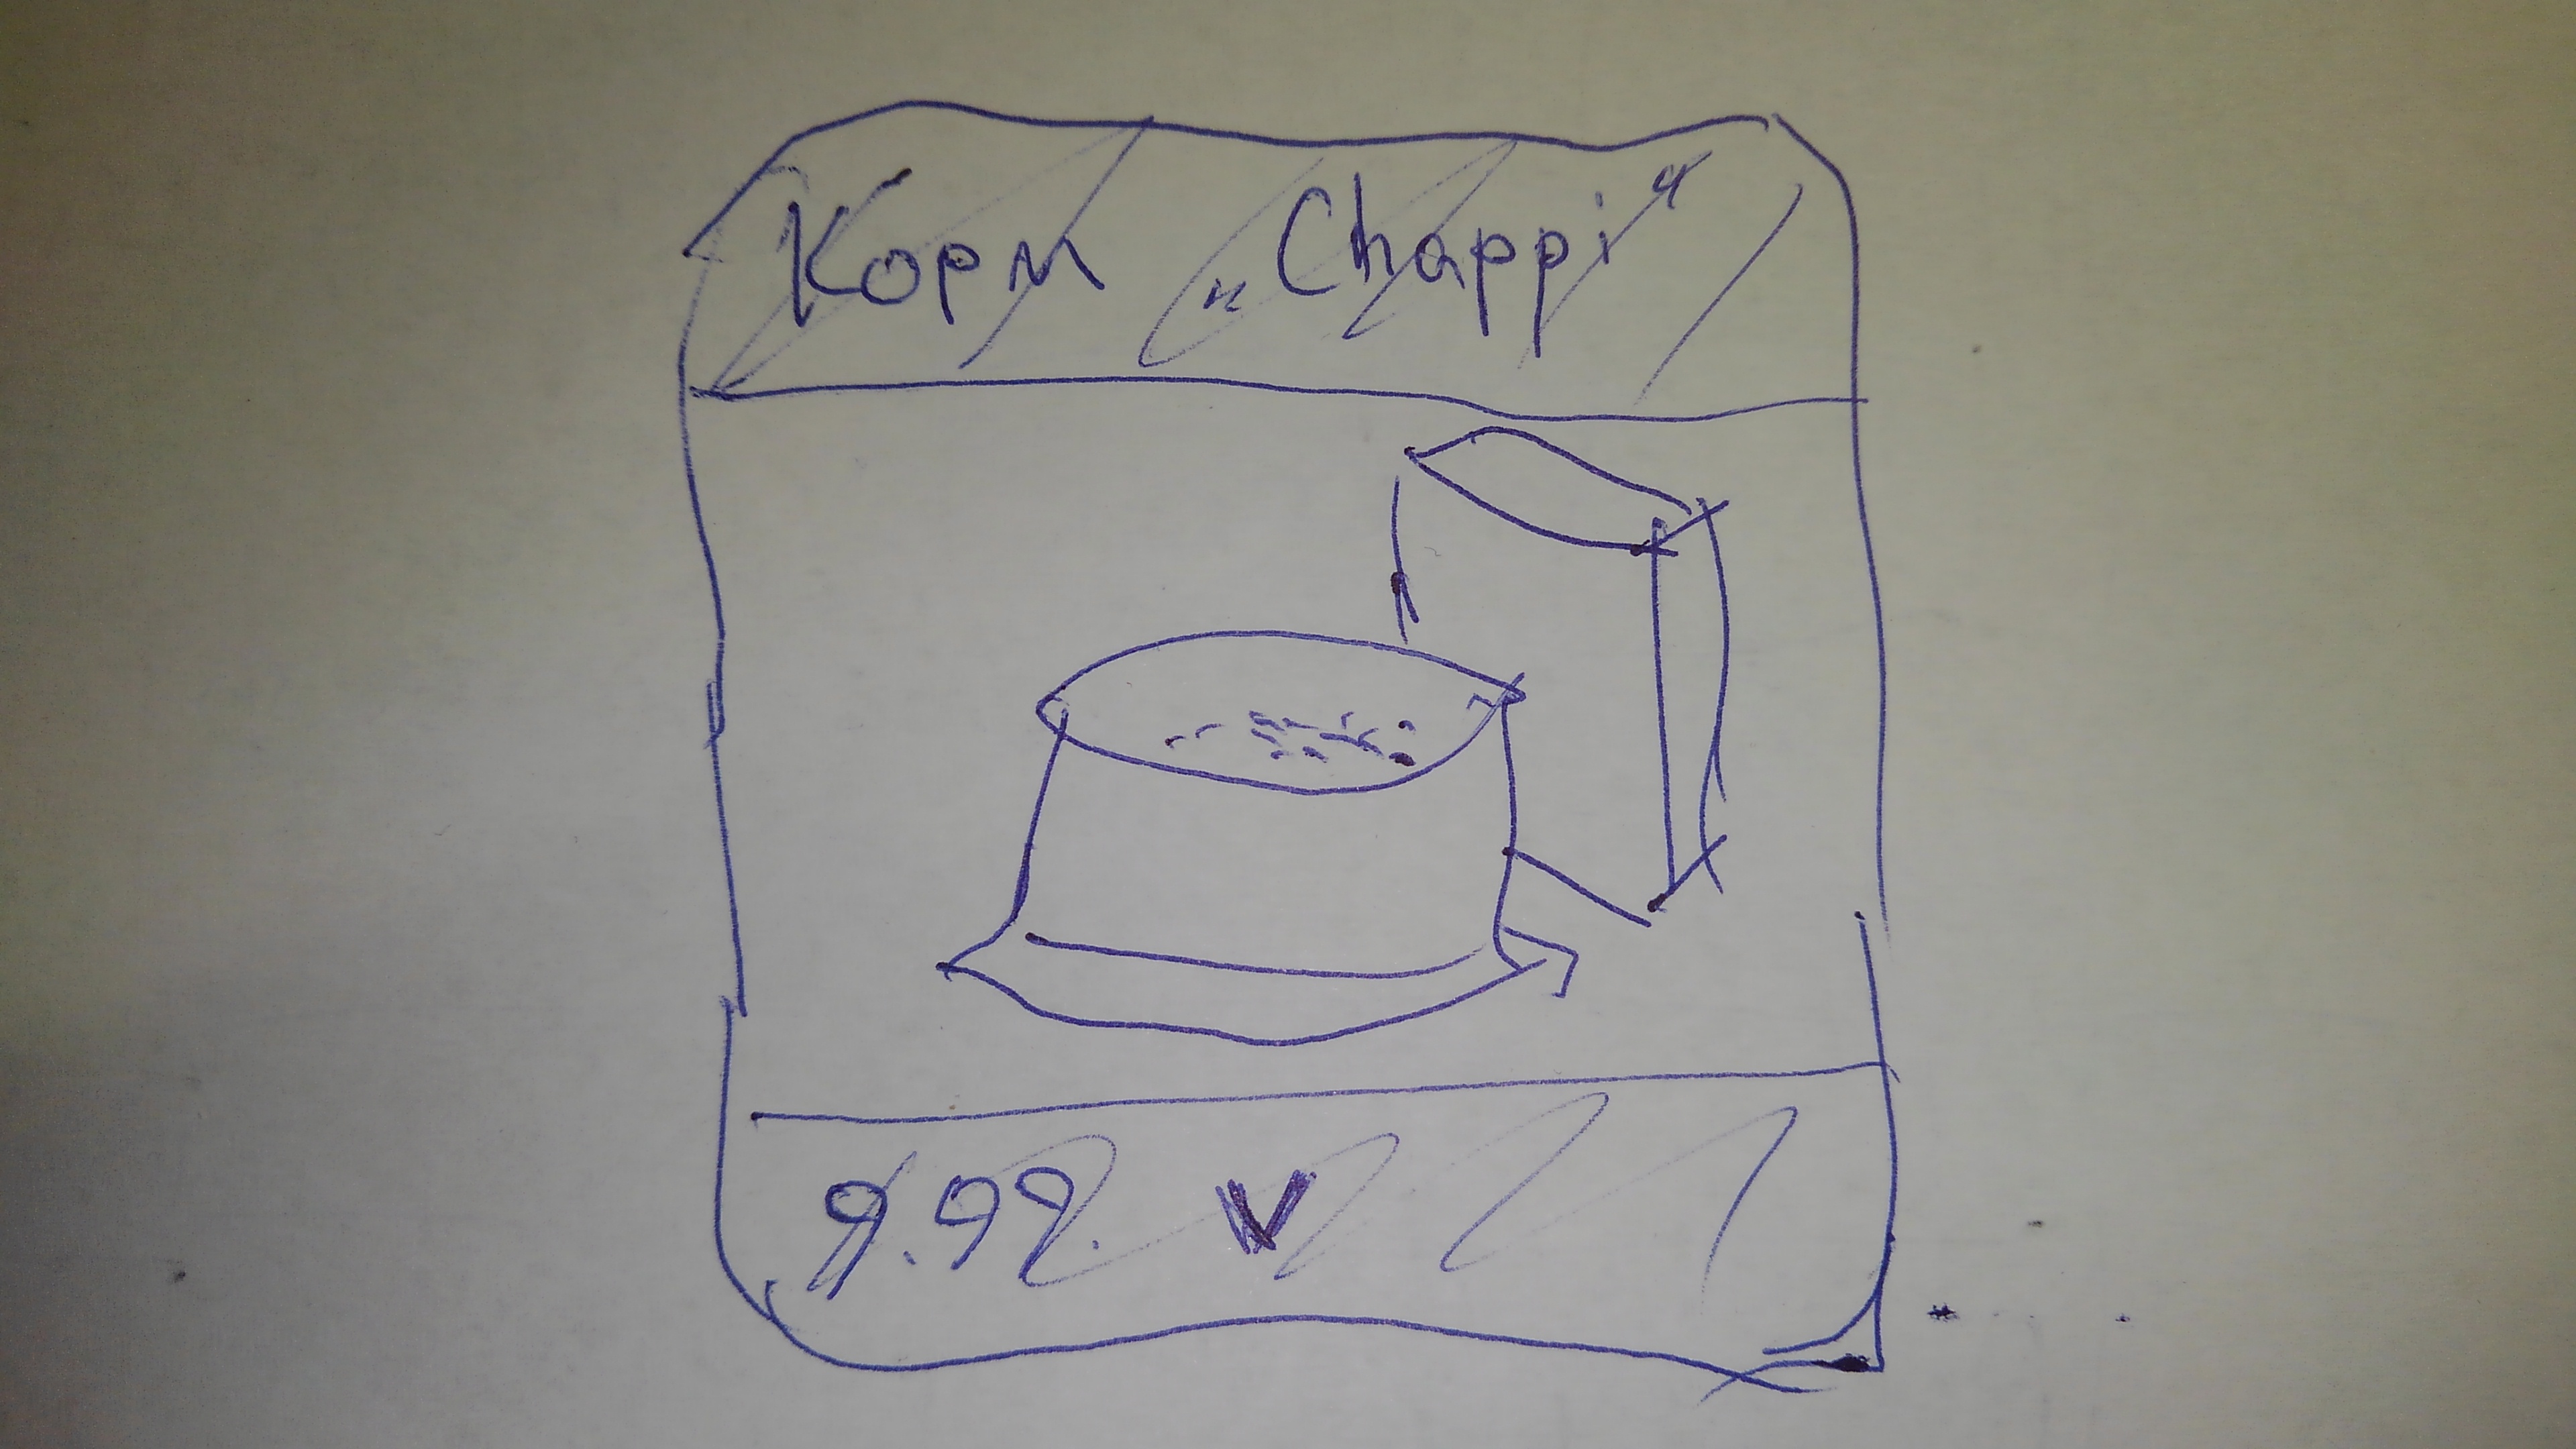 Корм „Chappi“
9.99.